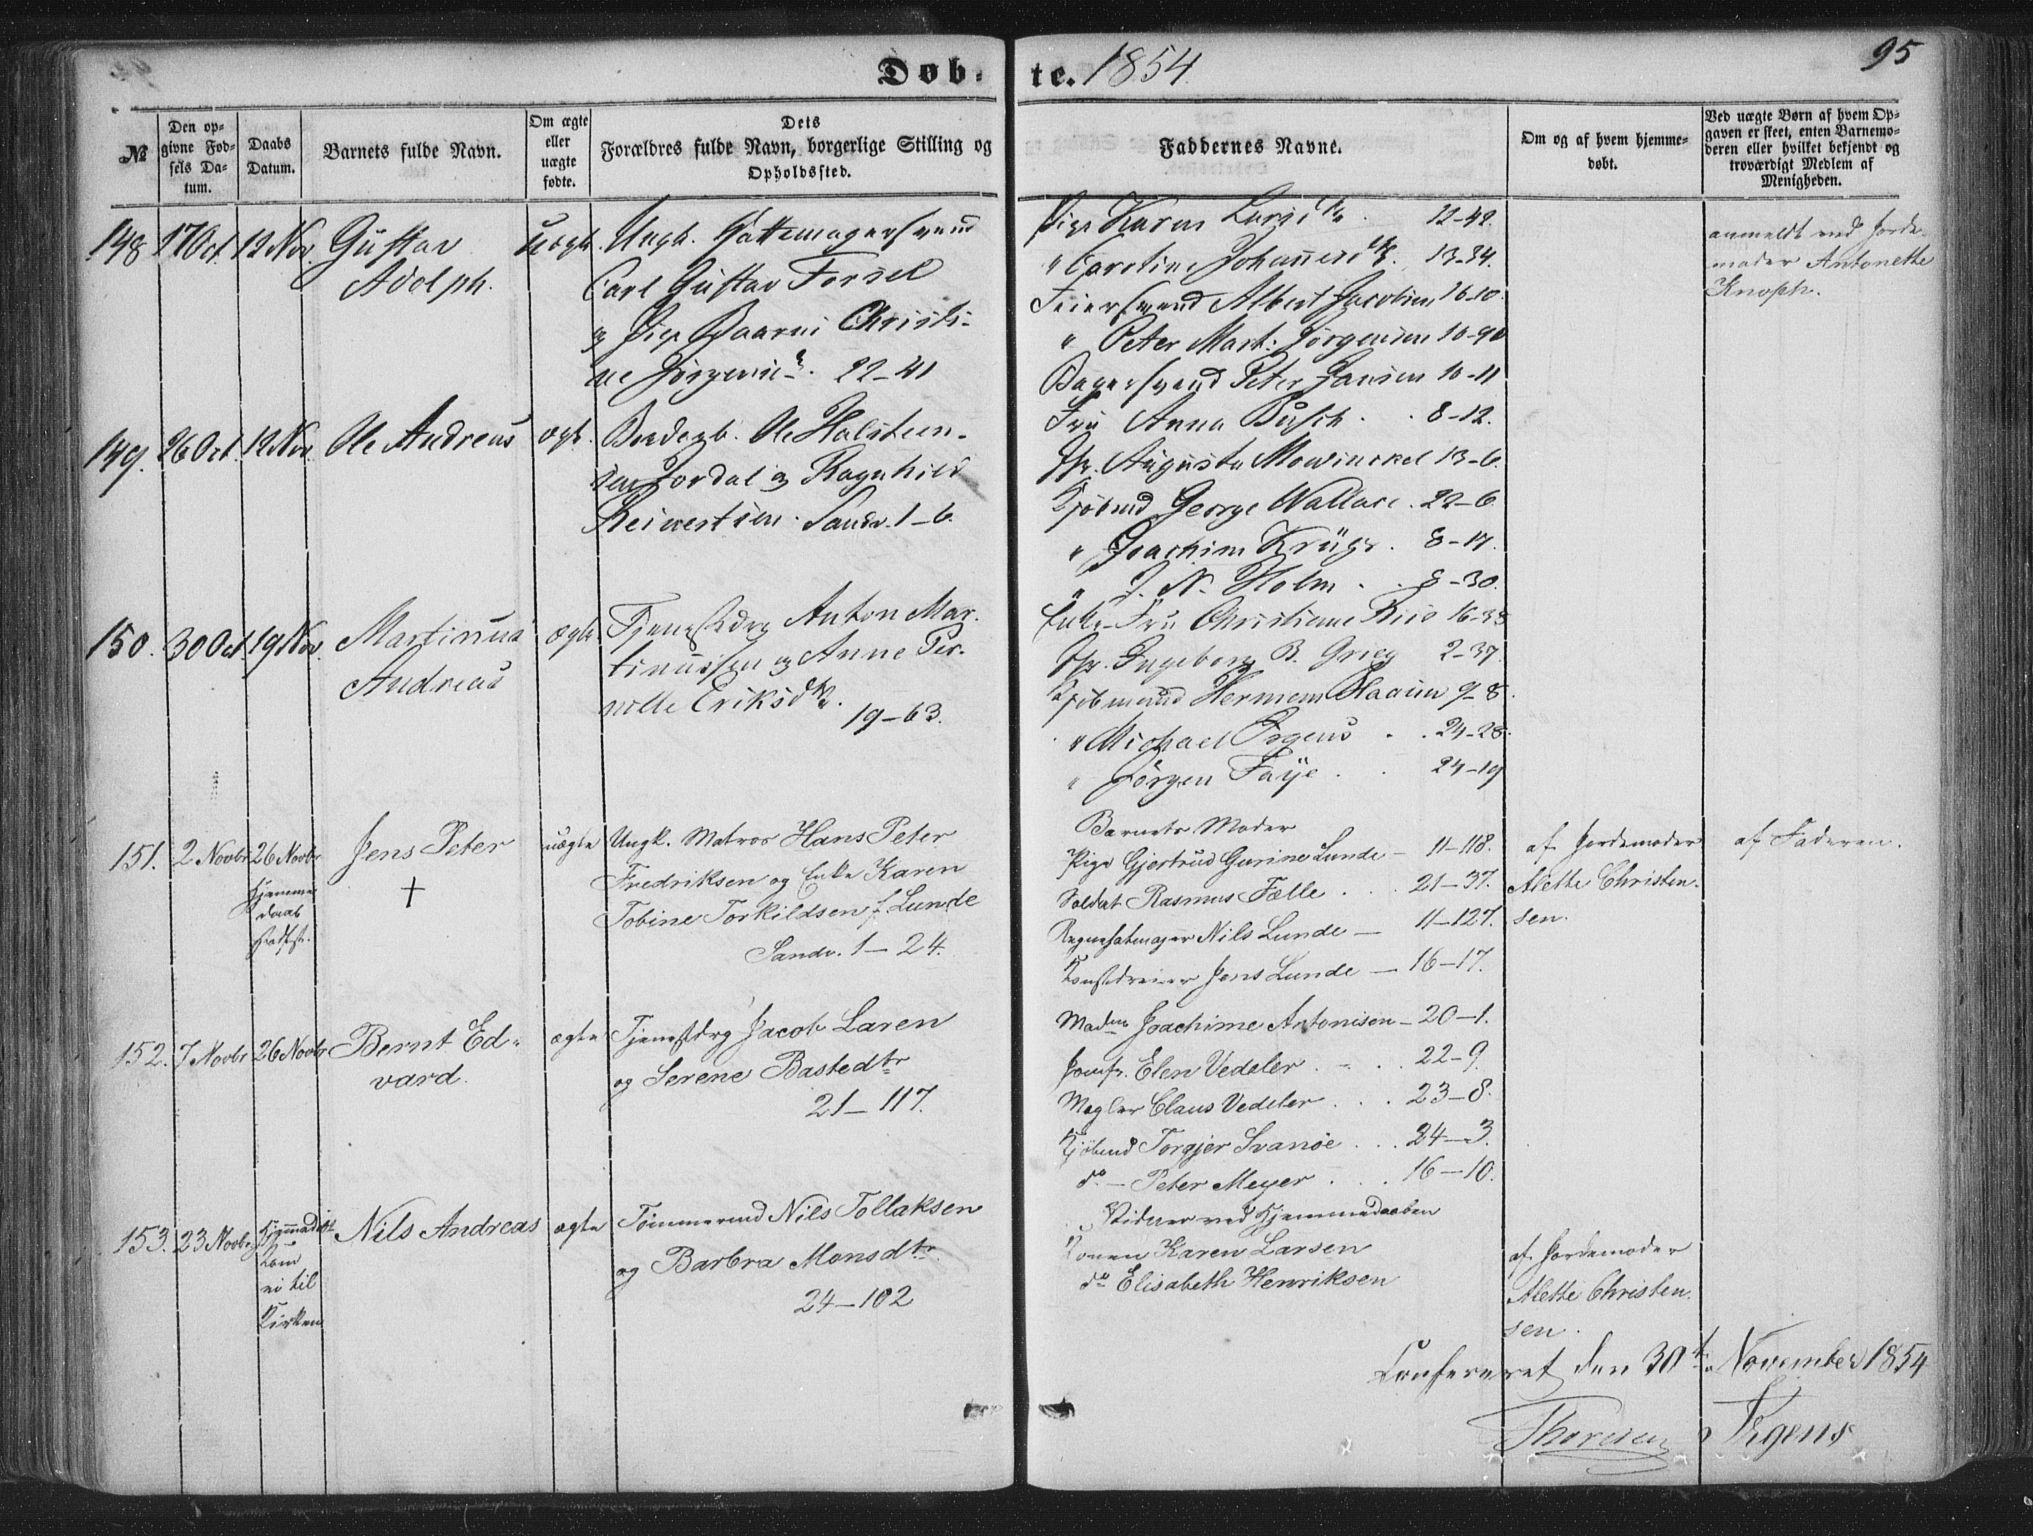 Døb-
te. 1854
95
№
Den op-
givne Fød-
sels Da-
tum.
Daabs
Datum.
Barnets fulde Navn.
Om ægte
eller
uægte
fødte.
Dets
Forældres fulde Navn, borgerlige Stilling og
Opholdssted.
Faddernes Navne.
Om og af hvem hjemme-
døbt.
Ved uægte Børn af hvem Op-
gaven er skeet, enten Barnemo-
deren eller hvilket bekjendt og
troværdigt Medlem af
Menigheden.
148 17 Oct 12 Nov. Gustav
Adolph.
uægte. Ungk. Hattemagersvend
Carl Gustav Forsel
og Pige Baarni Christi-
ne Jørgens 22-41
Pige Karen Larsd. 12-42.
" Caroline Johannesd. 13-34.
Feiersvend Albert Jacobsen 16-10.
" Peter Mart: Jørgensen 10-90
Bagersvend Peter Hansen 10-11
anmeldt ved Jorde-
moder Antonette
Knoph.
149. 26 Oct. 12 Nov. Ole Andreas ægte. Ole Halsteen-
sen Jordal og Ragnhild
Reinertsen. Sandv. 1-6.
Fru Anna Busch. . 8-12.
Jfr. Augusta Mowinckel 13-6.
Kjøbmd George Wallace. 22-6
" Joachim Krüger. 8-17.
" J. N. Holm. . 8-30.
150. 30 Oct. 19 Nov. Martinus
Andreas
ægte Tjenestdrg Anton Mar-
tinussen og Anne Per-
nelle Eriksd.
19-63.
Enke-Fru Christiane Riis 16-38
Jfr. Ingeborg B. Grieg 2-37.
Kjøbmand Hermann Haasen 9-8.
" Michael Irgens . . 24-28.
" Jørgen Faye . . 24-19
151. 2 Novbr 26 Novbr
Hjemme
daab
stadfst.
Jens Peter
+
uægte Ungk. Matros Hans Peter
Fredriksen og Enke Karen
Tobine Torkildsen f. Lunde
Sandv. 1-24.
Barnets Moder
Pige Gjertrud Gurine Lunde - 11-118.
Soldat Rasmus Fælle . . . 21-37.
Nils Lunde - 11-127.
Kunstdreier Jens Lunde - 16-17.
af Jordemoder
Alette Christen-
sen.
af Faderen.
152. 7 Novbr 26 Novbr Bernt Ed-
vard.
ægte Tjenestdrg Jacob Laren
og Serene Bastedtr
21-117.
Madm Joachime Antonisen - 20-1.
Jomfr. Elen Vedeler . - . . 22-9.
Mægler Claus Vedeler . . . 23-8.
Kjøbmd Torgjer Svanøe . . . 24-3.
do - Peter Meyer . . . 16-10.
153. 23 Novbr Hjemmedøbt.
Kom
ei til
Kirken
Nils Andreas ægte Tømmermd Nils Tollaksen
og Barbra Monsdtr.
24-102
Vidner ved Hjemmedaaben
Konen Karen Larsen
do Elisabeth Henriksen
af Jordemoder
Alette Christen-
sen.
Confereret den 30te November 1854
Thoresen Irgens